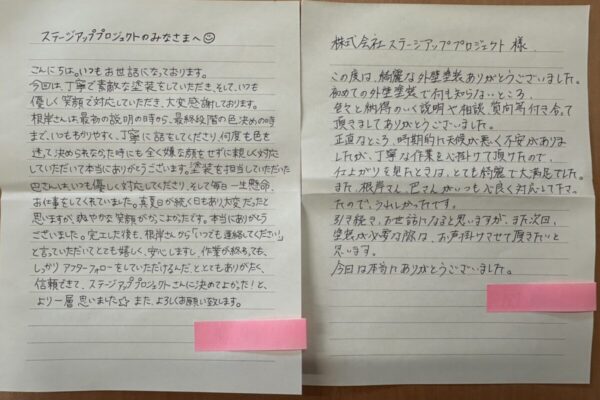 ステージアッププロジェクトのみなさまへ☺
こんにちは。いつもお世話になっております。
今回は、丁寧で素敵な塗装をしていただき、そして、いつも
優しく笑顔で対応していただき、大変感謝しております。
根岸さんは、最初の説明の時から、最終段階の色決めの時
まで、いつもわかりやすく、丁寧に話をしてくださり、何度も色を
迷って決められなかった時にも全く嫌な顔をせずに親しく対応
していただいて本当にありがとうございます。塗装を担当していただいた
巴さんは、いつも優しく対応してくださり、そして毎日一生懸命、
お仕事をしてくれていました。真夏日が続く日もあり大変だったと
思いますが、爽やかな笑顔がかっこよかったです。本当にありがとう
ございました。完工した後も、根岸さんから「いつでも連絡してください」
と言っていただいてとても嬉しく、安心しますし、作業が終わっても、
しっかりアフターフォローをしていただけるんだととてもありがたく、
信頼できて、ステージアッププロジェクトさんに決めてよかった!と、
より一層思いました☆ また、よろしくお願い致します。
株式会社ステージアッププロジェクト 様
この度は、綺麗な外壁塗装ありがとうございました。
初めての外壁塗装で何も知らないところ、
色々と納得のいく説明や相談、質問等付き合って
頂きましてありがとうございました。
正直なところ、時期的に天候が悪く不安がありま
したが、丁寧な作業を心掛けて頂けたので、
仕上がりを見たときは、とても綺麗で大満足でした。
また、根岸さん、巴さんがいつも心良く対応して下さっ
たので、うれしかったです。
引き続き、お世話になると思いますが、また次回、
塗装が必要な際は、お声掛けさせて頂きたいと
思います。
今回は本当にありがとうございました。